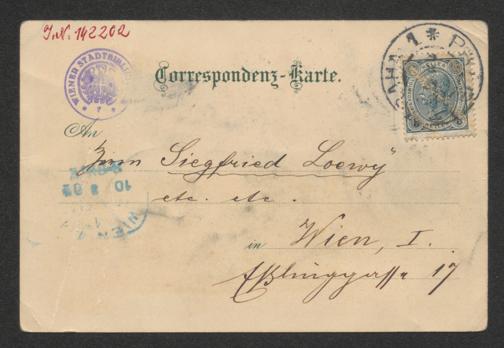 I.N. 142202
WIENER STADTBIBLIO
Correspondenz-Karte.
PRAHA 1 *
An
Siegfried Loewy"
etc. etc.
in Wien, I.
Eßlinggasse 17
10 3 02
WIEN 1